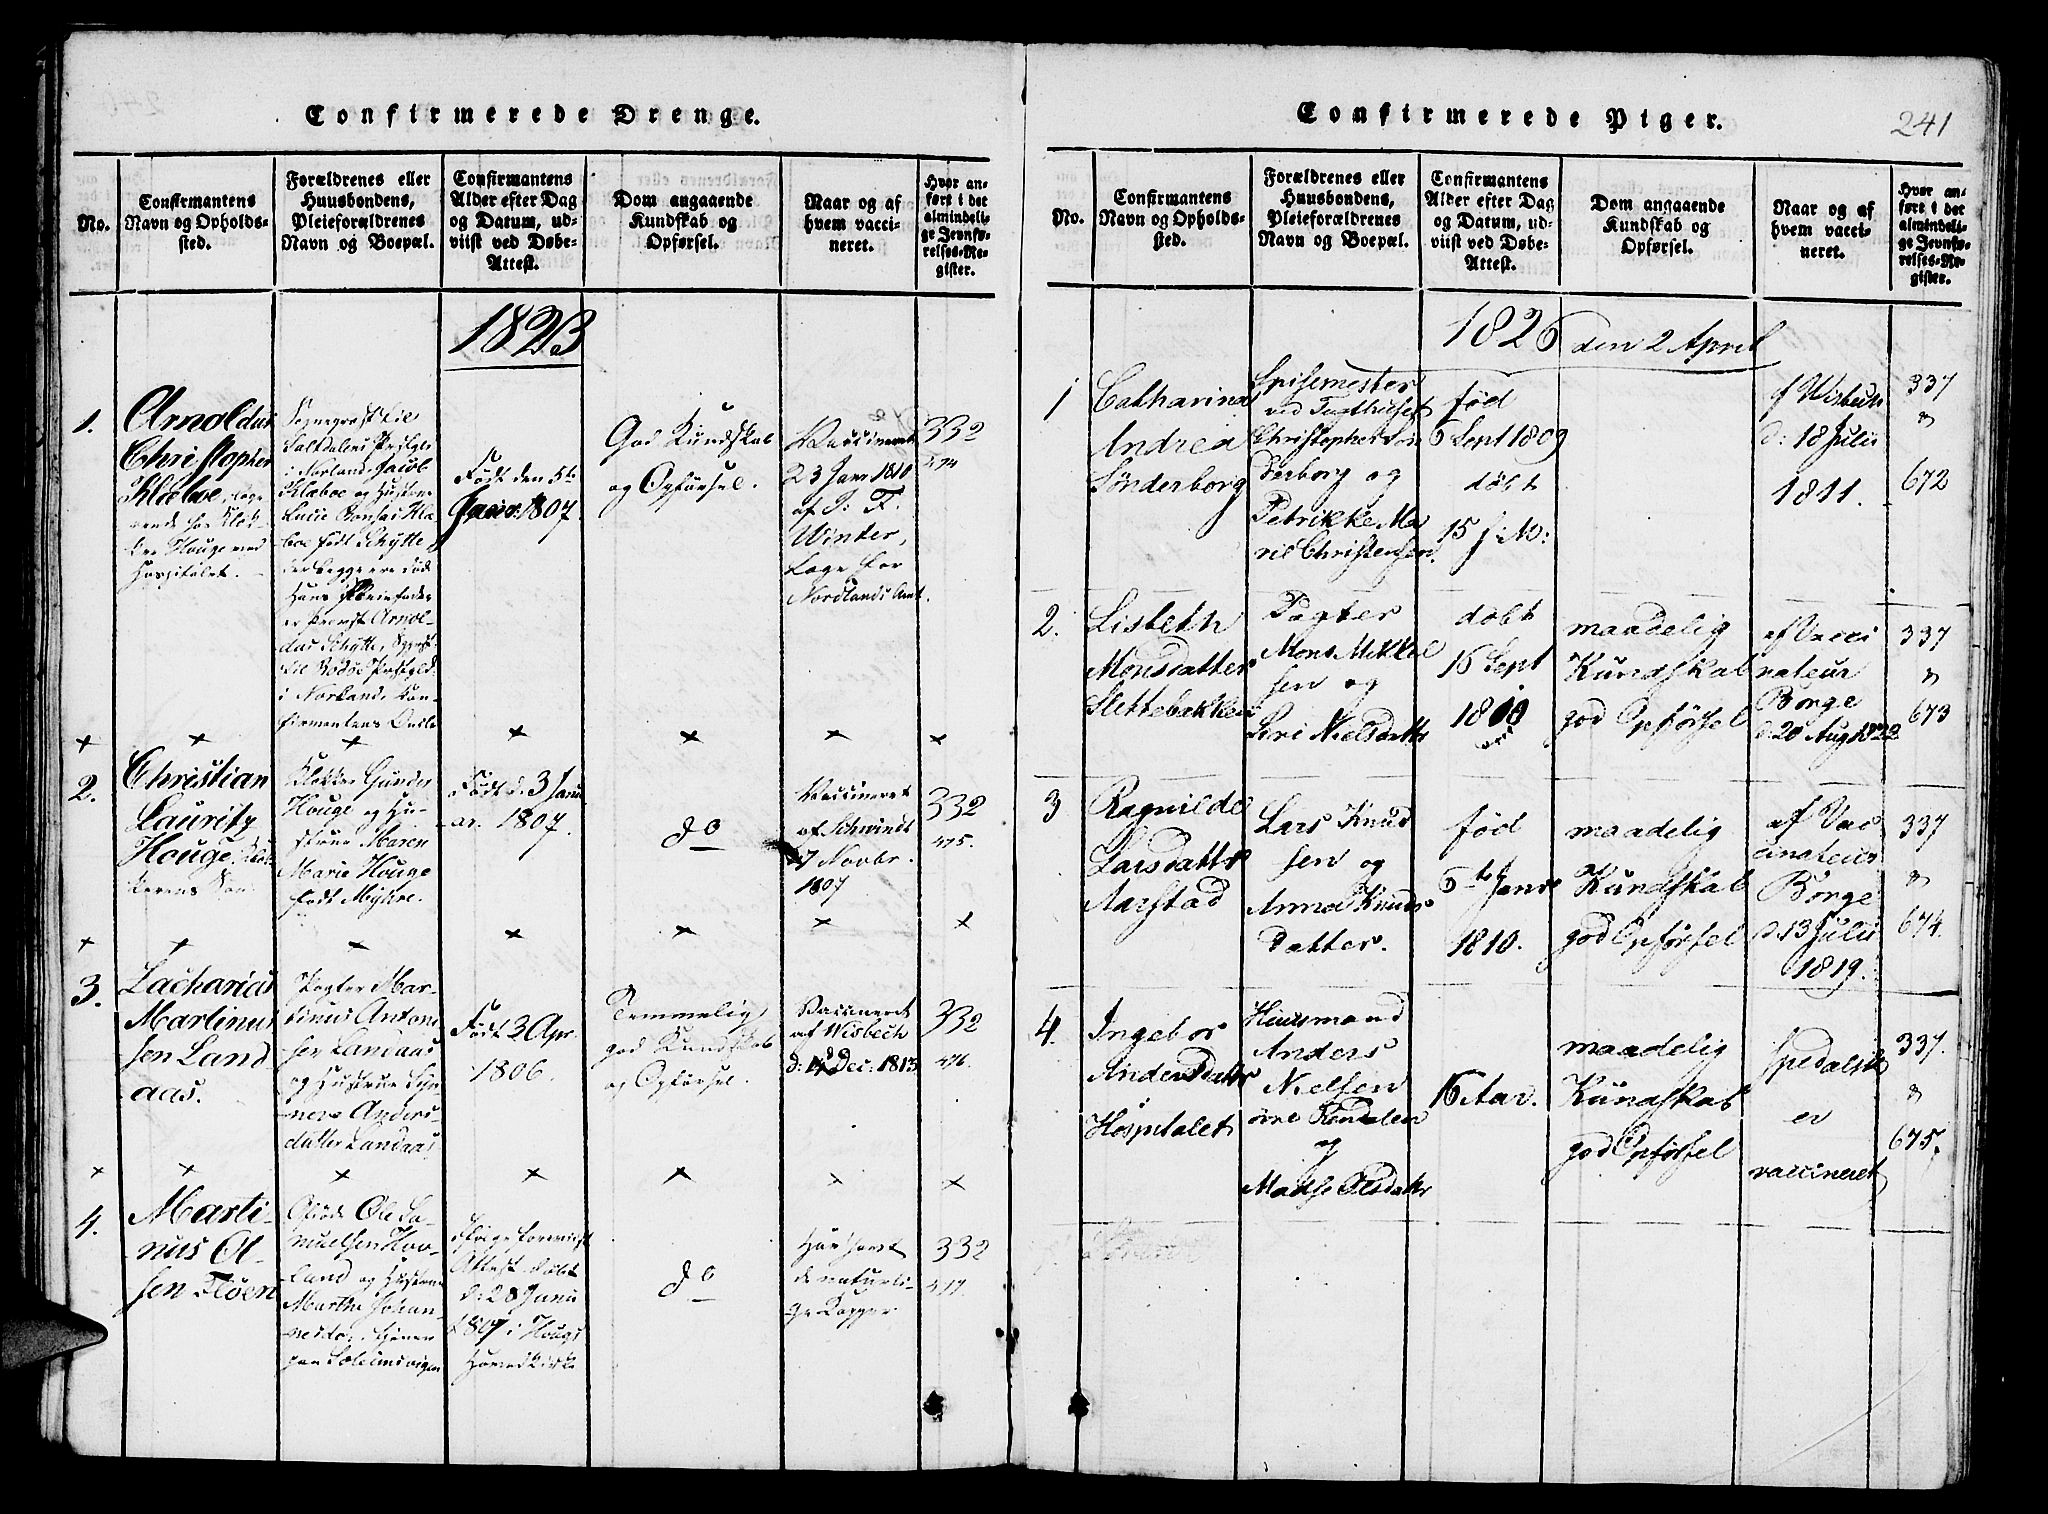 Confirmerede Drenge.
No.
Confirmantens
Navn og Opholds-
sted.
Forældrenes eller
Huusbondens,
Pleieforældrenes
Navn og Boepæl.
Confirmantens
Alder efter Dag
og Datum, ud-
viist ved Døbe-
Attest.
Dom angaaende
Kundskab og
Opførsel.
Naar og af
hvem vacci-
neret.
Hvor an-
ført i det
almindeli-
ge Jevnfø-
relses-Re-
gister.
1823
1.
Arnoldus
Christopher
Klæboe,
Houge ved
Hospitalet.
Sognepræst til
Saltdalens Præstgield
i Norland Jacob
Klæboe og Hustrue
Lucie Klæ-
boe født Schytte,
der begge ere død
Hans Pleiefader
er Provst Arnol-
dus Schytte, Sognepræst
til Bodøe Præstgield
i Norland, Con-
firmantens Onkle
Født den 5te
Janr. 1807.
God Kundskab
og Opførsel.
Vaccineret
23 Janr 1810
af P: F.
Winter,
Læge for
Nordlands Amt.
332
474
2.
Christian
Lauritz
Houge,
Klokker Gunder
Houge og Hu-
strue Maren
Marie Houge
født Myhre.
Født d. 3 Janu-
ar. 1807.
do
Vaccineret
af Schwindt
17 Novbr.
1807
332
475.
3.
Zacharias
Martinus
sen Land
aas.
Pagter Mar-
tinus Anton
sen Landaas
og Hustrue
Anders
datter Landaas
Født 3 Apr.
1806.
Temmelig
god Kundskab
og Opførsel.
Vaccineret
af Wisbech
d: 14 Dec: 1813
332
476.
4.
Marti-
nus Ol-
sen Fløen
Ole Sa-
muelsen Hov-
land og Hustrue
Marthe Johan-
nesdr., tjener
paa Soleimsvigen
ifølge foreviist
Attest døbt
d: 28 Janu
1807 i Hougs
Hovedkirke
do
Har havt
de naturli-
ge Kopper
332
477.
Confirmerede Piger.
241
No.
Confirmantens
Navn og Opholds-
sted.
Forældrenes eller
Huusbondens,
Pleieforældrenes
Navn og Boepæl.
Confirmantens
Alder efter Dag
og Datum, ud-
viist ved Døbe-
Attest.
Dom angaaende
Kundskab og
Opførsel.
Naar og af
hvem vacci-
neret.
Hvor an-
ført i det
almindeli-
ge Jevnfø-
relses-Re-
gister.
1826 den 2 April
1
Catharina
Andrea
Sønderborg
Spisemester
ved Tugthuset
Christophersen
Sønderborg og
Petrikke Ma
ril Christensen.
fød
6 Sept 1809
døbt
15 f: M:
af Wisbech
d: 18 Julii
1811.
337
"
672
2.
Lisbeth
Monsdatter
Slettebakken
Pagter
Mons Mikkel
sen og
Siri Nielsdattr
døbt
16 Sept
1810
maadelig
Kundskab
god Opførsel
af Vacci
nateur
Børge
d. 20 Aug 1822
337
"
673
3
Ragnilde
Larsdattr
Aarstad
Lars Knud
sen og
Anna Knuds
datter.
fød
5te Janr
1810.
maadelig
Kundskab
god Opførsel
af Vac
cinateur
Børge
d. 13 Julii
1819.
337
"
674.
4.
Ingebor
Andersdattr
Hospitalet
Huusmand
Anders
Nielsen
øvre Fendalen
og
Madse Olsdattr
16 Aar.
maadelig
Kundskab
god Opførsel
Spedalsk
er
vaccineret
337.
"
675.